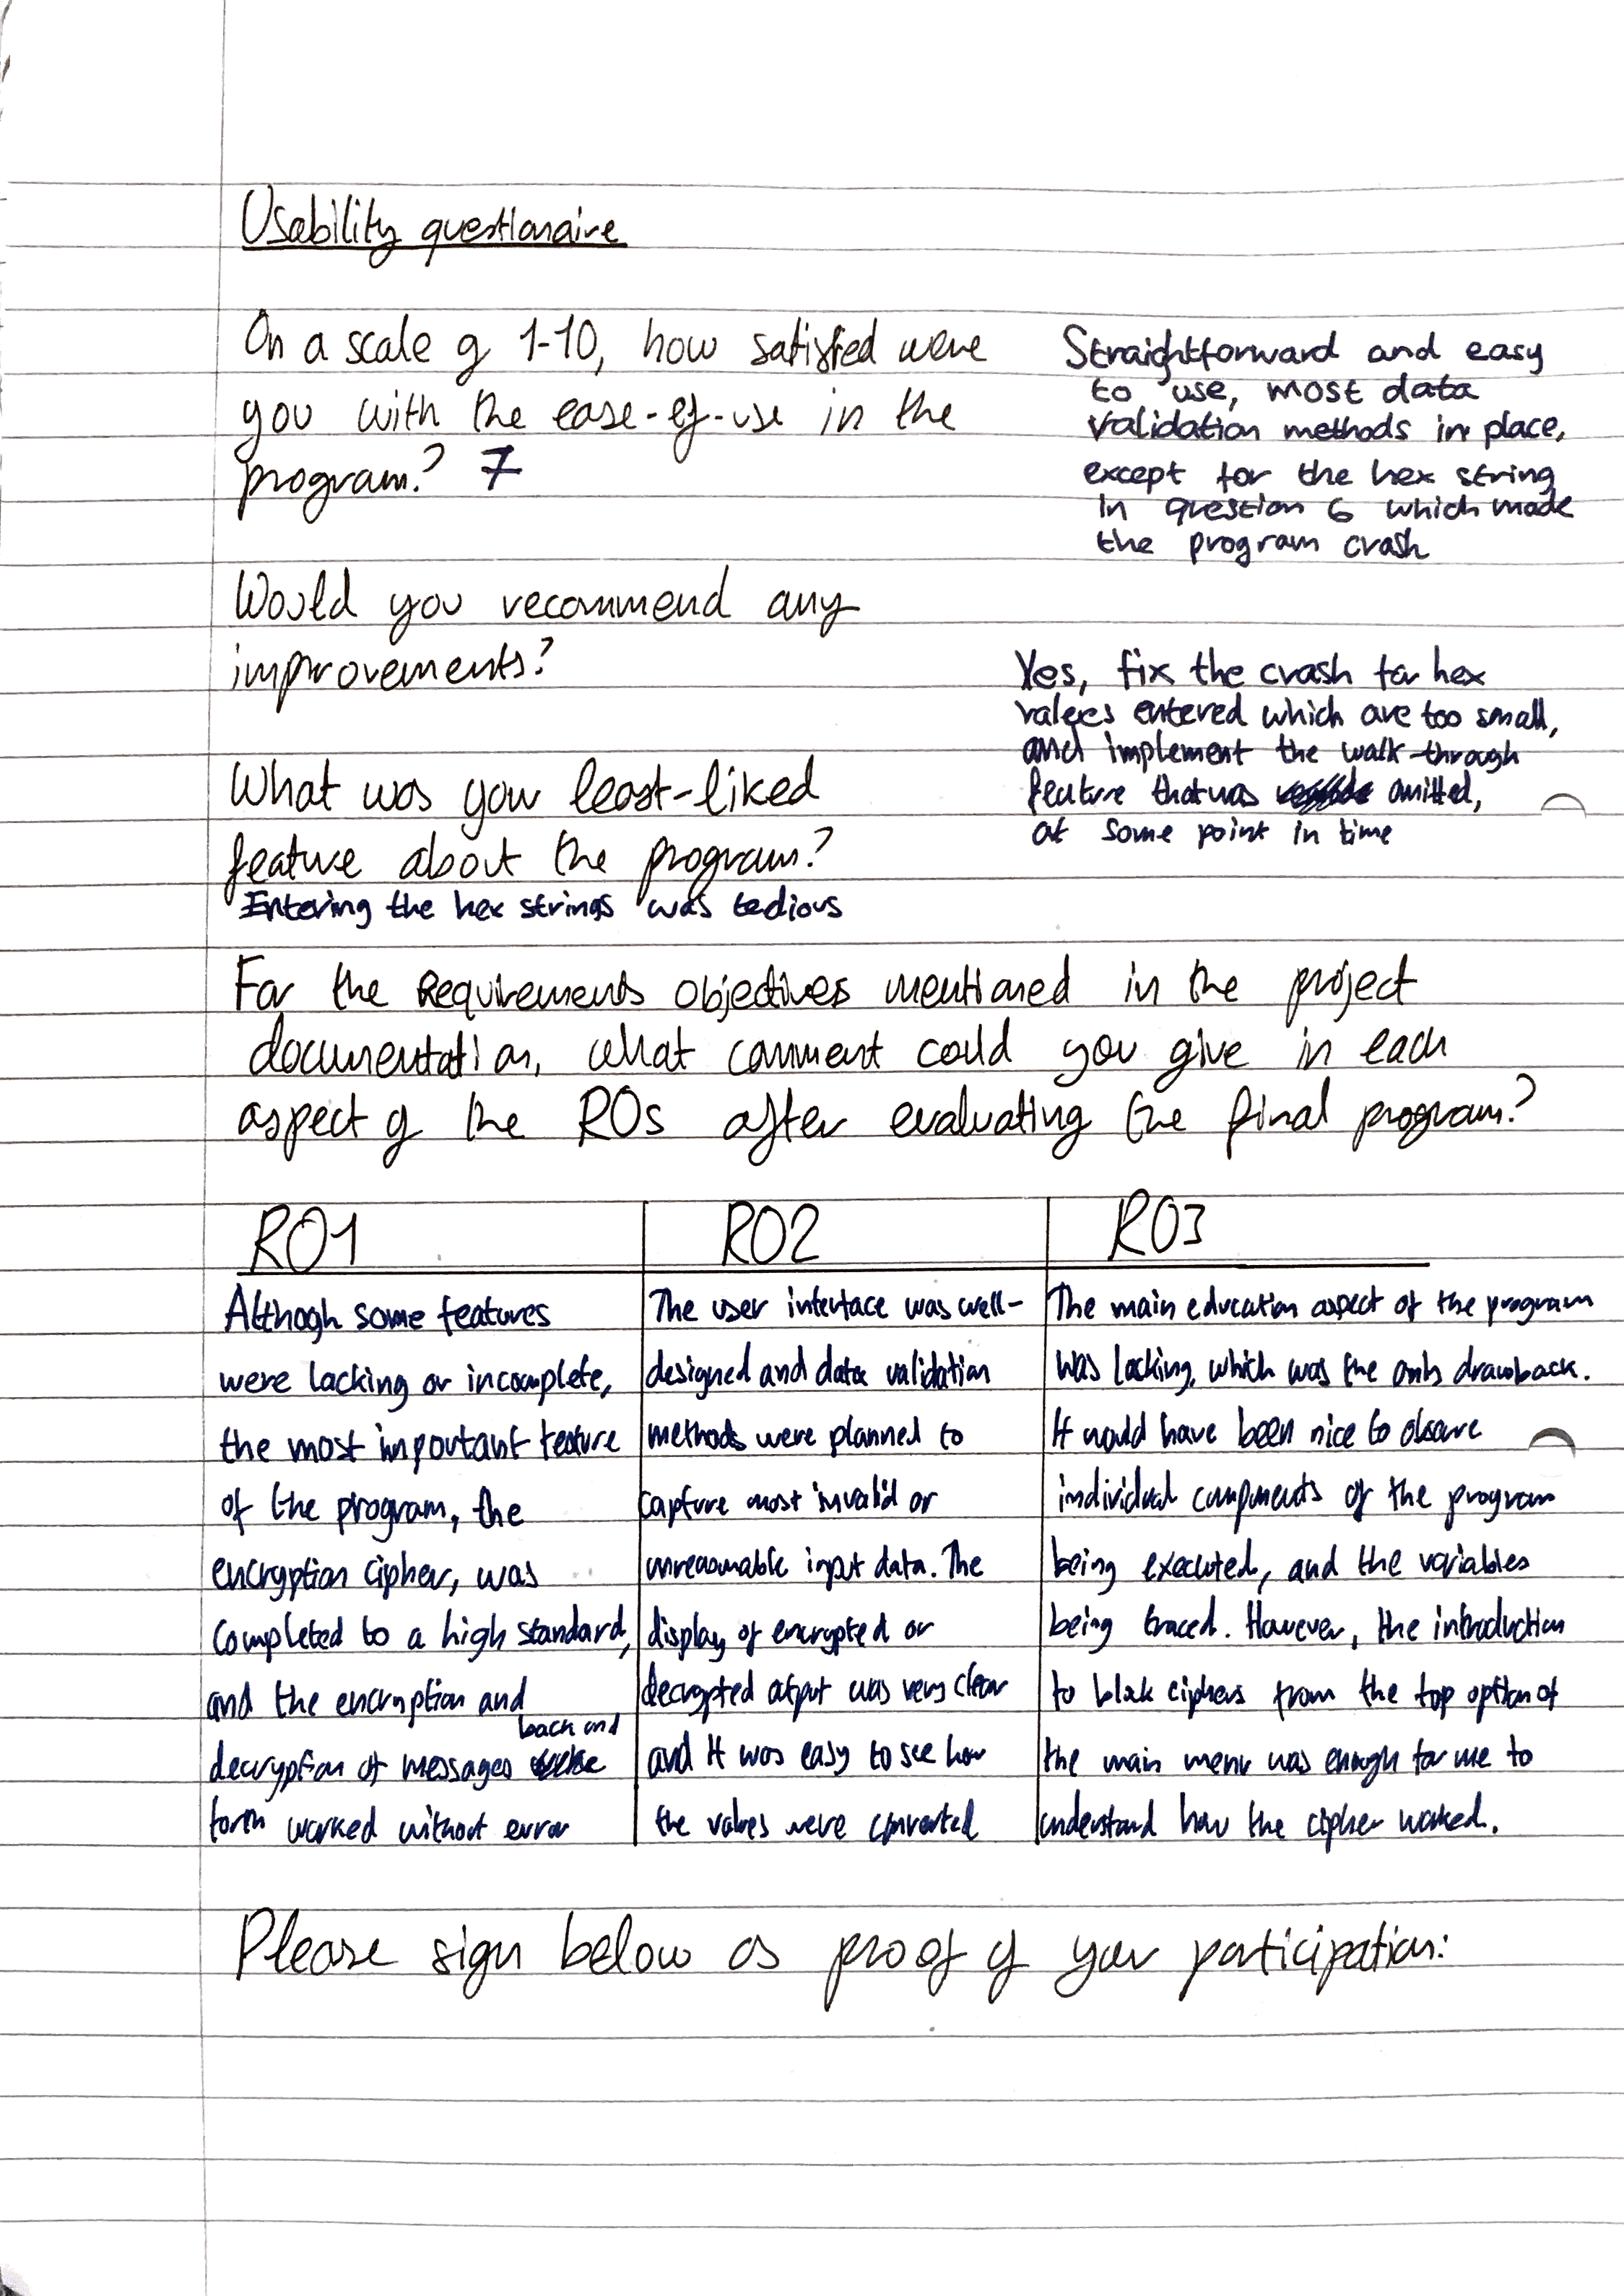 Usability questionaire
On a scale of 1-10, how satisfied were
you with the ease-of-use in the
program? 7
Straightforward and easy
to use, most data
validation methods in place,
except for the hex string
in question 6 which made
the program crash
Would you recommend any
improvements?
Yes, fix the crash for hex
values entered which are too small,
and implement the walk-through
feature that was omitted,
at some point in time
What was your least-liked
feature about the program?
Entering the hex strings was tedious
For the Requirements Objectives mentioned in the project
documentation, what comment could you give in each
aspect of the ROs after evaluating the final program?
RO1
Althogh some features
were lacking or incomplete,
the most important feature
of the program, the
encryption cipher, was
completed to a high standard,
and the encryption and
decryption of messages back and
forth worked without error
RO2
The user interface was well-
designed and data validation
methods were planned to
capture most invalid or
unreasonable input data. The
display of encrypted or
decrypted output was very clear
and it was easy to see how
the values were converted
RO3
The main education aspect of the program
was lacking, which was the only drawback.
It would have been nice to observe
individual components of the program
being executed, and the variables
being traced. However, the introduction
to block ciphers from the top option of
the main menu was enough for me to
understand how the cipher worked.
Please sign below as proof of your participation: